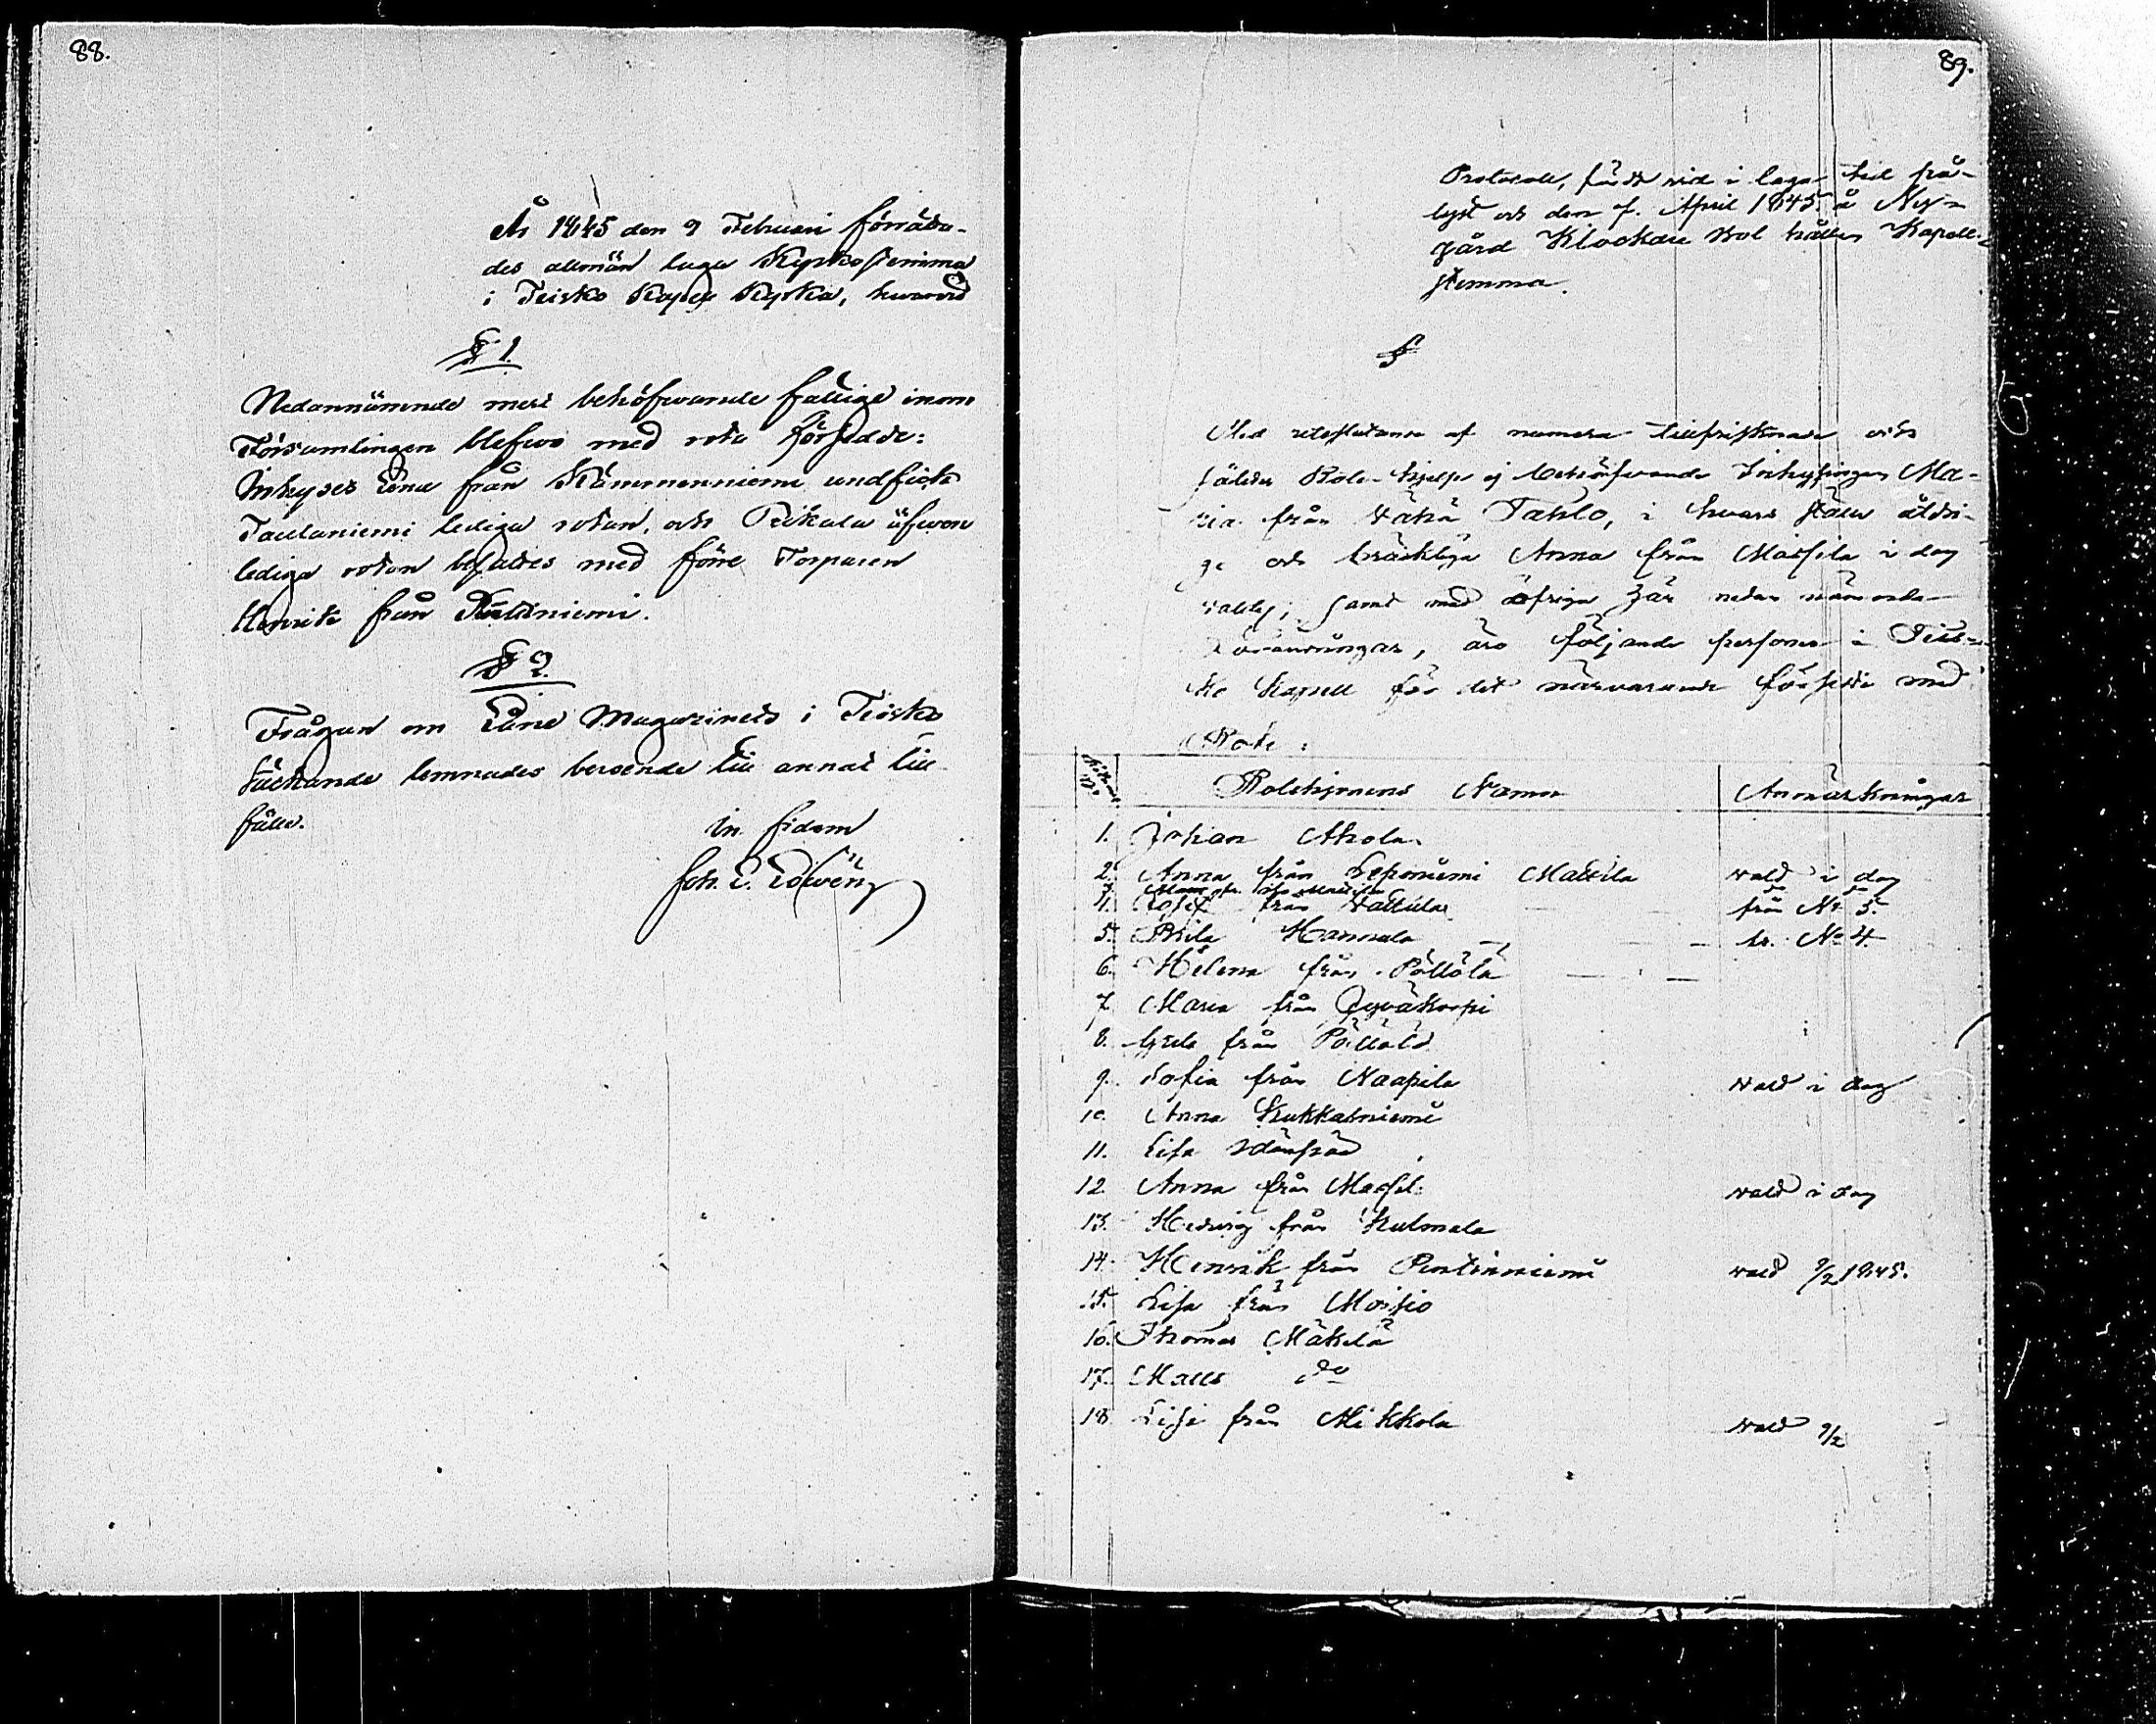 88.
År 1845 den 9 Februari förrätta-
des allmän laga Kyrkostemma
i Teisko Kapell Kyrka, hwarvid
§ 1.
Nedannämnde mest behöfwande fattige inom
Församlingen blefwo med rota försedde:
Inhyses Lena från Kämmenniemi undfick
Taulaniemi lediga rotan, och Pikala äfwen
lediga rotan besattes med förre Torparen
Henrik från
§ 2.
Frågan om Låne Magazinets i Teisko
täckande lemnades beroende till annat till-
fälle.
in fidem
Joh. E. Löwén
89.
Protocoll, fördt vid i laga tid på-
lyst och den April 1845 å Ny-
gård Klockare Bol hållen Kapell-
stemma.
§
Med uteslutande af numera tillfrisknade och
således Rote-hjelp ej behöfwande Inhysingen Ma-
ria från Wähä Pahlo, i hwars ställe åldri-
ga och bräckliga Anna från Maisila i dag
valdes, samt med öfriga här nedan nämnda
förändringar, äro följande personer i Teis-
ko Kapell för det närvarande försedde med
Rote:
Rotehjonens Namn Anmärkningar
1. Johan Ahola
2. Anna från Leponiemi Mattila vald i dag
4. Josef från Wattula från No 5.
5. Brita Hannula fr. No 4.
6. Helena från Pöllölä
7. Maria från Syväkorpi
8. Greta från Pöllölä
9. Sofia från Naapila vald i dag
10. Anna Kukkaniemi
11. Lisa
12. Anna från vald i dag
13. Hedvig från Kulmala
14. Henrik från Pentinniemi vald 9/2 1845.
15. Lisa från Moisio
16. Thomas Mäkelä
17. Matts do
18. Lisa från Mikkola vald 9/2